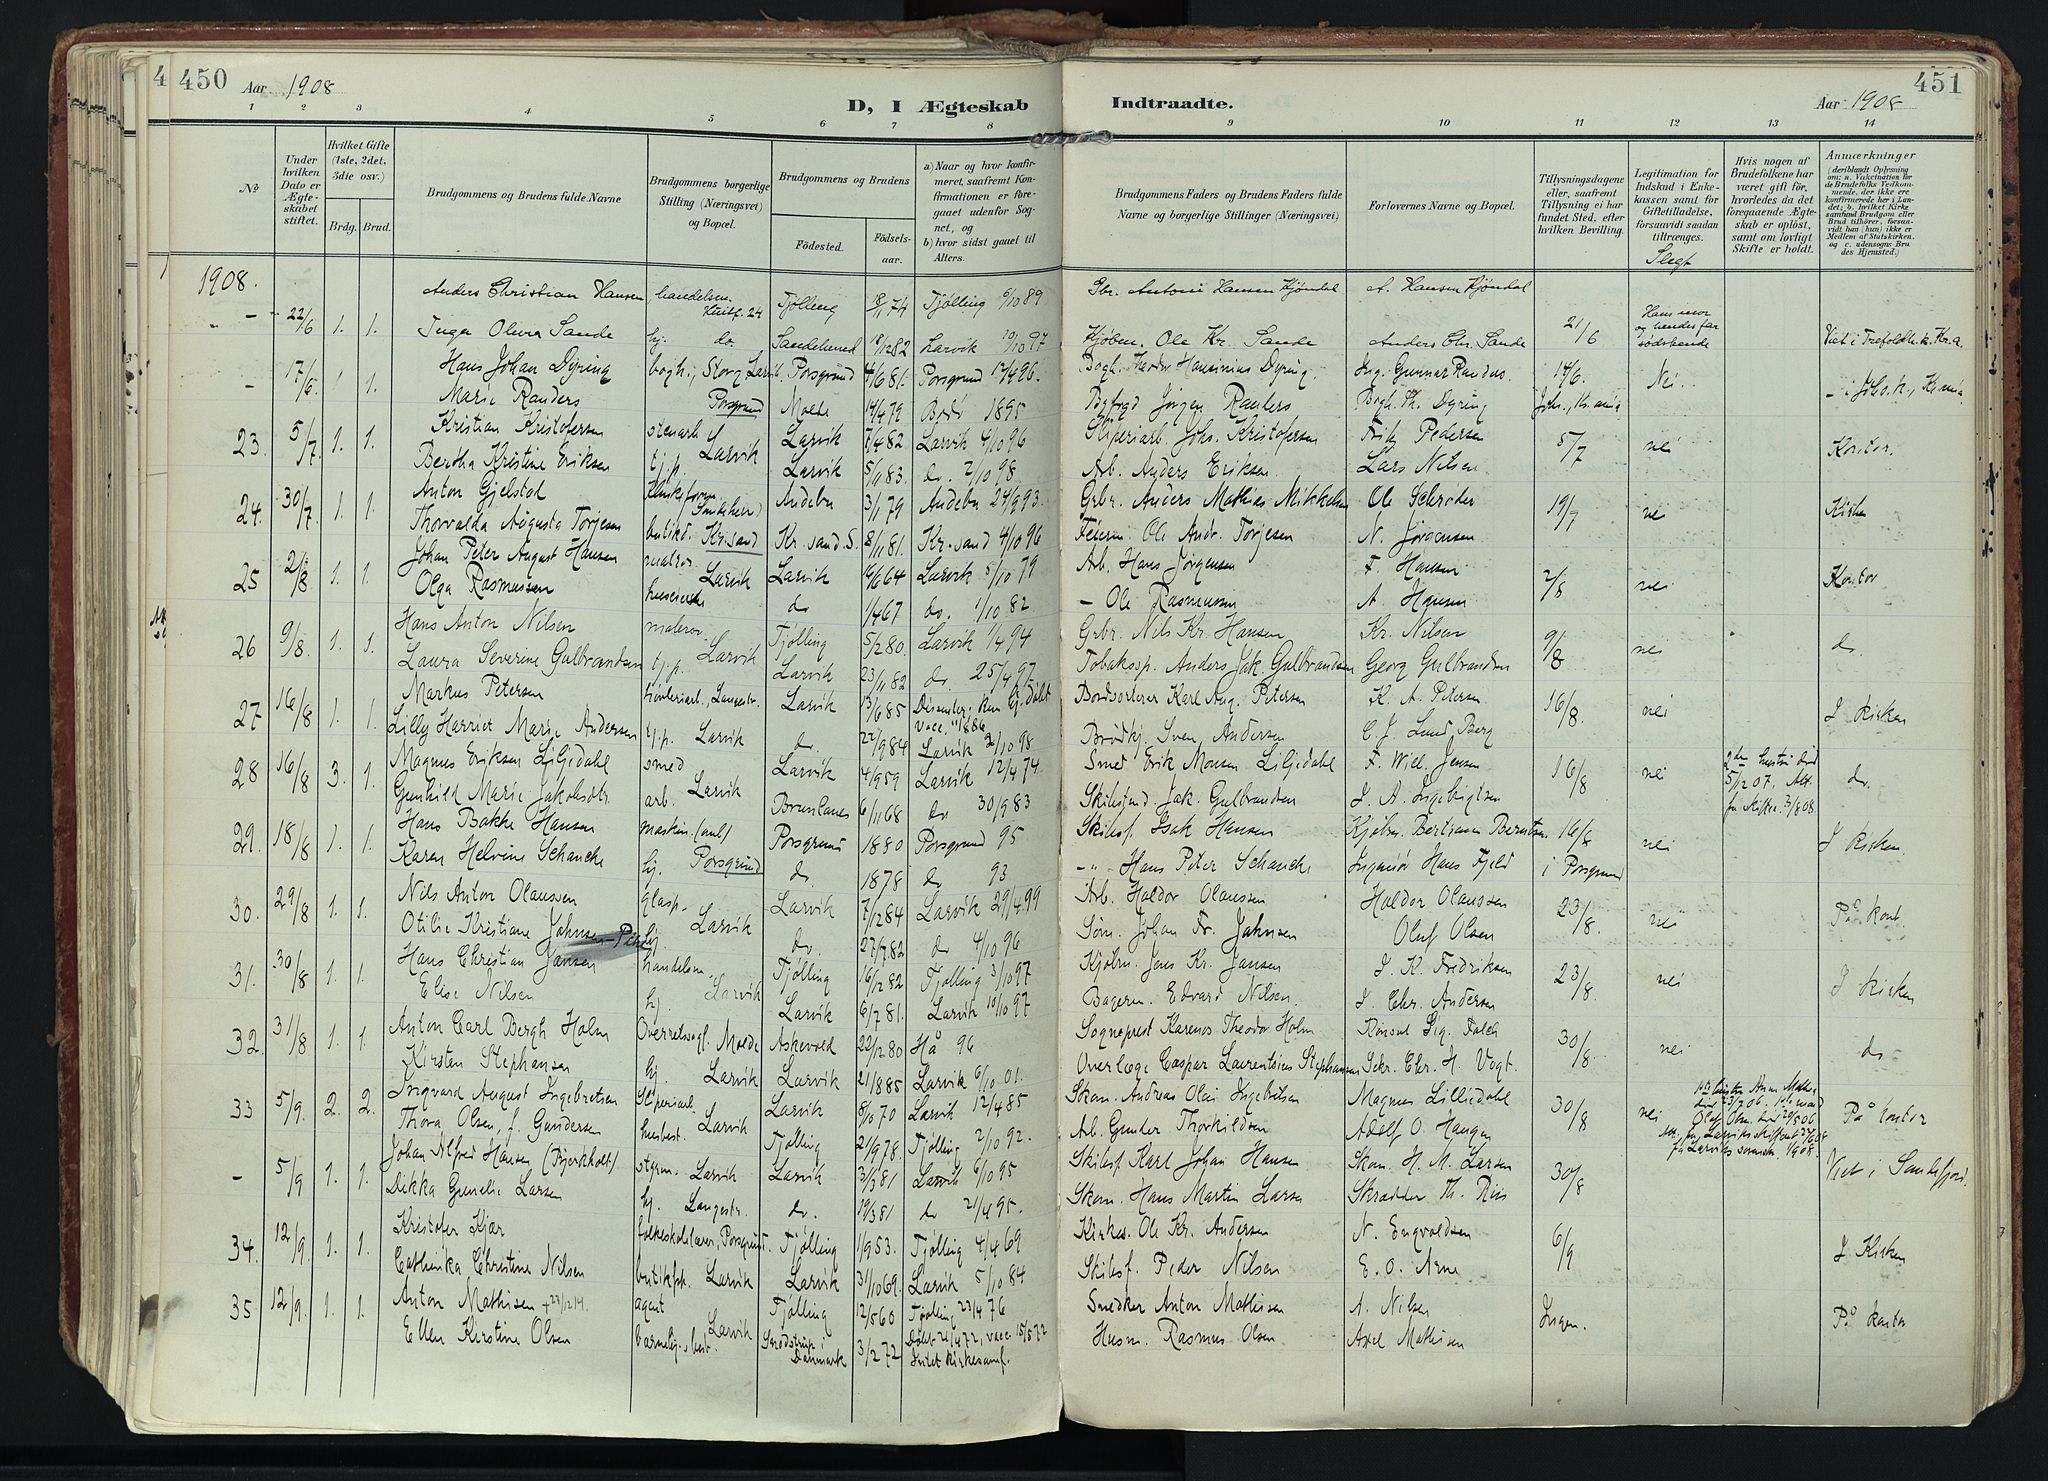 4 450 Aar 1908
D, I Ægteskab
Indtraadte.
Aar 1908 451
1 2 3 4 5 6 7 8
9 10 11 12 13 14
No
Under hvilken Dato er Ægteskabet stiftet.
Hvilket Gifte (1ste, 2det, 3die osv.)
Brdg. Brud.
Brudgommens og Brudens fulde Navne
Brudgommens borgerlige Stilling (Næringsvei) og Bopæl.
Brudgommens og Brudens
Fødested. Fødselsaar.
a) Naar og hvor konfirmeret, saafremt Konfirmationen er foregaaet udenfor Sognet, og
b) hvor sidst gaaet til Alters.
Brudgommens Faders og Brudens Faders fulde Navne og borgerlige Stillinger (Næringsvei)
Forlovernes Navne og Bopæl.
Tillysningsdagene eller, saafremt Tillysning ei har fundet Sted, efter hvilken Bevilling.
Legitimation for Indskud i Enkekassen samt for Giftetilladelse, forsaavidt saadan tiltrænges.
Slegt
Hvis nogen af Brudefolkene har været gift før, hvorledes da det foregaaende Ægteskab er opløst, samt om lovligt Skifte er holdt.
Anmærkninger
(deriblandt Oplysning om: a. Vakcination for de Brudefolks Vedkommende, der ikke ere konfirmerede her i Landet; b. hvilket Kirkesamfund Brudgom eller Brud tilhører, forsaavidt han (hun) ikke er Medlem af Statskirken, og c. udensogns Brudes Hjemsted.)
1908.
Anders Christian Hansen handelsm. 24 Tjølling 18/11 74 Tjølling 6/10 89 Gbr. Antoni Hansen Kjøndal A. Hansen Kjøndal
- 22/6 1. 1. Inga Olava Sande hj. do. Sandeherred 18/12 82 Larvik 10/10 97 Kjøbm. Ole Kr. Sande Anders Chr. Sande 21/6 Hans mor og hendes far sødskende Viet i Trefoldh. k. Kr.a.
Hans Johan Dyring bogh., Storg. Larvik Porsgrund 4/6 81. Porsgrund 12/4 96. Bogh. Theodor Hansinius Dyring Ing. Gunnar Randers. 14/6. Nei.
- 17/6. 1. 1. Marie Randers Porsgrund Molde 14/4 79 Bodö 1895 Byfogd Jørgen Randers Bogh. Th. Dyring Joh., Kr.ania - i Joh. k., Kr.ania
Kristian Kristofersen stenarb. Larvik Larvik 7/4 82 Larvik 4/10 96 Sliperiarb. Johs. Kristofersen Fritz Pedersen
23. 5/7 1. 1. Bertha Kristine Eriksen tj.p. Larvik 5/11 83. do. 2/10 98. Arb. Anders Eriksen. Lars Nilsen 5/7 nei Kontor.
Anton Gjelstad Sandeherred Andebu 3/1 79 Andebu 24/9 93. Grbr. Anders Mathias Mikkelsen Ole Schrøder
24. 30/7 1. 1. Thorvalda Augusta Torjesen butikd. Kr.sand Kr.sand. S. 8/11 81. Kr.sand 4/10 96 Feierm. Ole Andr. Torjesen N. Jørgensen 19/7 nei Kirken
Johan Peter August Hansen matros Larvik Larvik 16/6 64 Larvik 5/10 79 Arb. Hans Jørgensen F. Hansen
25 2/8 1. 1. Olga Rasmussen do 1/4 67 do. 1/10 82 - Ole Rasmussen A. Hansen 2/8 nei Kontor
Hans Anton Nilsen malersv. Larvik Tjølling 5/2 80. Larvik 1/4 94 Grbr. Nils Kr. Hansen Kr. Nilsen
26 9/8. 1. 1. Laura Severine Gulbrandsen tj.p. Larvik 23/11 82 do. 25/4 97. Tobakssp. Anders Jak. Gulbrandsen Georg Gulbrandsen 9/8 nei do.
Markus Petersen høvleriarb., Langestr. Larvik 13/6 85 Dissenter, kun døbt vacc. 1886 Bordsorterer Karl Aug. Petersen K. A. Petersen
27 16/8 1. 1. Lilly Harriet Marie Andersen tj.p. Larvik do. 22/9 84 Larvik 2/10 98 Brödkj. Sven Andersen C. J. Lund, Berg 16/8. nei I Kirken
Magnus Eriksen Liljedahl smed Larvik Larvik 4/9 59 Larvik 12/4 74 Smed Erik Monsen Liljedahl F. Will. Jensen
28 16/8 3. 1. Gunhild Marie Jakobsdtr. arb. Brunlanes 6/11 68 do 30/9 83 Skibstmd. Jak. Gulbrandsen J. A. Ingebrigtsen 16/8 nei 2den hustru død 5/12 07. Att. fra skifter. 3/8 08. do.
Hans Bakke Hansen maskin. Porsgrund 1880 Porsgrund 95 Skibsf. Isak Hansen Kjøbm. Bertram Berntsen
29. 18/8 1. 1. Karen Helvine Schancke hj. Porsgrund do. 1878 do 93 -"- Hans Peter Schancke Ingeniør Hans Fjeld 16/8 i Porsgrund nei I Kirken
Nils Anton Olaussen glasp. Larvik Larvik 7/12 84 Larvik 29/4 99 Arb. Haldor Olaussen Haldor Olaussen
30. 29/8 1. 1. Otilie Kristiane Johnsen- hj. do. 27/7 82 do 4/10 96 Søm. Johan Fr. Johnsen Oluf Olsen 23/8. nei På kont.
Hans Christian Jansen handelsm. Larvik Tjølling 16/12 82 Tjølling 3/10 97 Kjøbm. Jens Kr. Jansen J. K. Fredriksen
31. 30/8 1. 1. Elise Nilsen hj. Larvik 6/7 81. Larvik 10/10 97 Bagerm. Edvard Nilsen. J. Chr. Andersen 23/8. nei I Kirken
Anton Carl Bergh Holm Overretssagf. Molde Askevold 22/12 80 Hå 96 Sogneprest Karenos Theodor Holm Konsul Sig. Falch
32. 31/8 1. 1. Kirsten Stephansen hj. Larvik Larvik 21/8 85 Larvik 6/10 01. Overlæge Caspar Laurentsius Stephansen Sekr. Chr. H. Vogt. 30/8 nei do
Ingvard August Ingebretsen Sliperiarb. Larvik Larvik 8/10 70 Larvik 12/4 85 Skom. Andreas Olai Ingebretsen Magnus Lilljedahl
33 5/9. 2. 2. Thora Olsen, f. Gundersen husbest. Tjølling 21/9 78. Tjølling 2/10 92. Arb. Gunder Thorkildsen Adolf O. Haugen 30/8 nei På kontor
Johan Alfred Hansen (Bjerkholt) styrm. Larvik Larvik 3/3 81 Larvik 6/10 95 Skibsf. Karl Johan Hansen Skom. H. M. Larsen
- 5/9 1. 1. Dekka Gunelie Larsen hj. Langestr. do. 19/3 81 do 21/4 95. Skom. Hans Martin Larsen Skrædder Th. Riis 30/8 Viet i Sandefjord.
Kristofer Kjær folkeskolelærer, Porsgrund. Tjølling 1/9 53. Tjølling 4/4 69 Kirkes. Ole Kr. Andersen N. Engvoldsen
34. 12/9. 1. 1. Cathinka Christine Nilsen butikfh. Larvik Larvik 31/10 69. Larvik 5/10 84 Skibsf. Peder Nilsen E. O. Arne 6/9 I Kirken
Anton Mathisen +23/12 19. agent Larvik Tjølling 12/5 60 Tjølling 23/4 76 Snedker Anton Mathisen A. Nilsen
35. 12/9. 1. 1. Ellen Kirstine Olsen i Danmark 3/2 72 Døbt 21/4 72, vacc. 15/5 72 Intet kirkesamf. Husm. Rasmus Olsen Axel Mathisen Ingen. På kontor